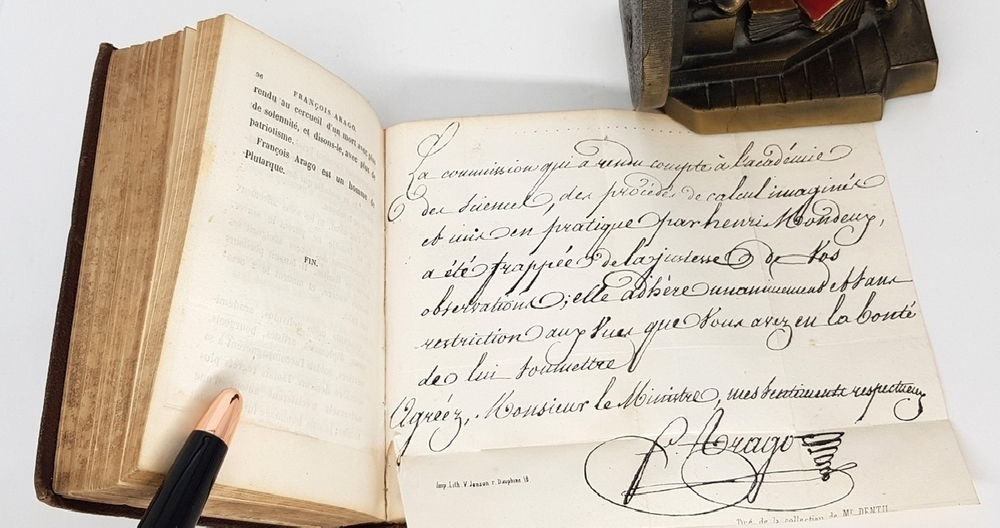 96
FRANÇOIS ARAGO.
rendu au cercueil d'un mort avec plus
de solennité, et disons-le, avec plus de
patriotisme.
François Arago est un homme de
Plutarque.
FIN.
La commission qui a rendu compte à l'académie
des Sciences, des procédés de calcul imaginés
et mis en pratique par henri Mondeux,
a été frappée de la justesse de Vos
observations; elle adhère unanimement et sans
restriction aux Vues que Vous avez eu la bonté
de lui soumettre
Agréez, Monsieur le Ministre, mes sentiments respectueux
F. Arago
Imp. Lith. V. Janson r. Dauphine 18
Tiré de la collection de Mr. DENTU